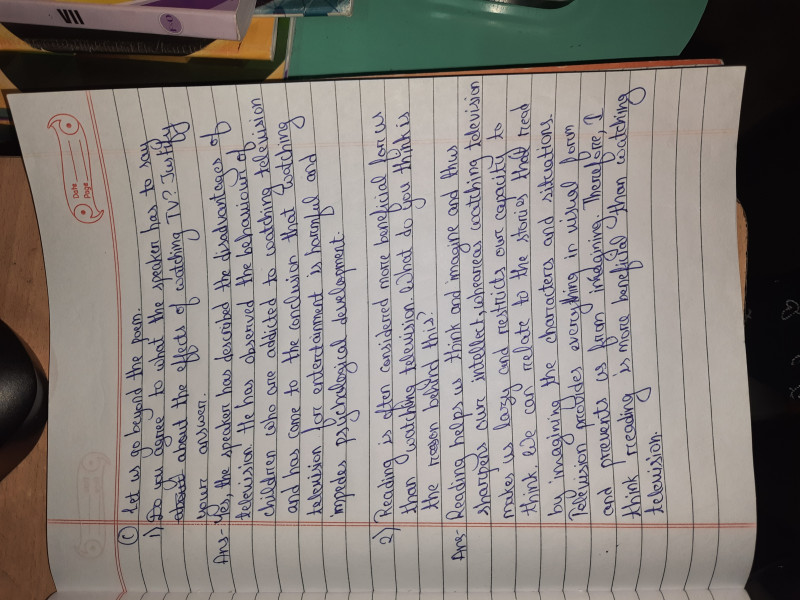 VII
Date
Page
C) Let us go beyond the poem.
1) Do you agree to what the speaker has to say
about about the effects of watching TV? Justify
your answer.
Ans- Yes, the speaker has described the disadvantages of
television. He has observed the behaviour of
children who are addicted to watching television
and has come to the conclusion that watching
television for entertainment is harmful and
impedes psychological development.
2) Reading is often considered more beneficial for us
than watching television. What do you think is
the reason behind this?
Ans- Reading helps us think and imagine and thus
sharpens our intellect, wheareas watching television
makes us lazy and restricts our capacity to
think. We can relate to the stories that read
by imagining the characters and situations.
Television provides everything in visual form
and prevents us from imagining. Therefore, I
think rreading is more beneficial than watching
television.